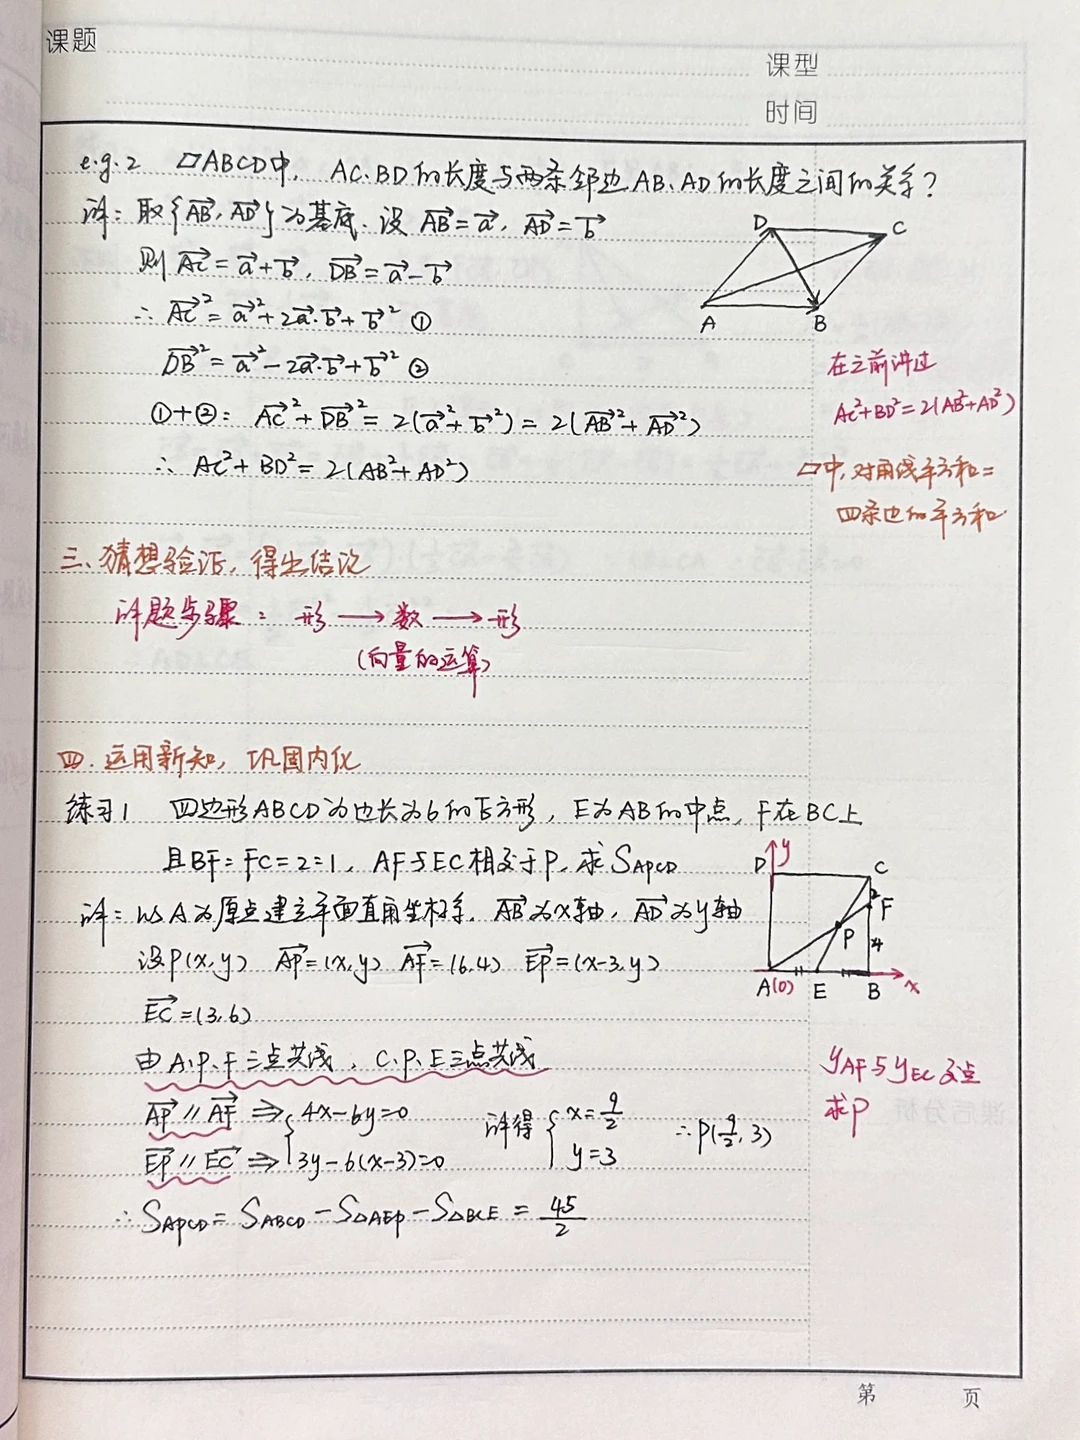 课题
课型
时间
e.g.2 ▱ABCD中, AC、BD的长度与两条邻边AB、AD的长度之间的关系?
解:取{AB⃗, AD⃗}为基底. 设 AB⃗=a⃗, AD⃗=b⃗
则AC⃗=a⃗+b⃗, DB⃗=a⃗-b⃗
∴AC⃗²=a⃗²+2a⃗·b⃗+b⃗² ①
DB⃗²=a⃗²-2a⃗·b⃗+b⃗² ②
①+②: AC⃗²+DB⃗²=2(a⃗²+b⃗²)=2(AB⃗²+AD⃗²)
∴ AC²+BD²=2(AB²+AD²)
D C
A B
在之前讲过
AC²+BD²=2(AB²+AD²)
▱中,对角线平方和=
四条边的平方和
三、猜想验证, 得出结论
解题步骤: 形→数→形
(向量的运算)
四. 运用新知, 巩固内化
练习1 四边形ABCD为边长为6的正方形, E为AB的中点, F在BC上
且BF:FC=2:1, AF与EC相交于P, 求S_APCD
解:以A为原点建立平面直角坐标系, AB⃗为x轴, AD⃗为y轴
设P(x,y) AP⃗=(x,y) AF⃗=(6,4) EP⃗=(x-3,y)
EC⃗=(3,6)
由A.P.F三点共线, C.P.E三点共线
AP⃗∥AF⃗ ⇒ {4x-6y=0
EP⃗∥EC⃗ ⇒ {3y-6(x-3)=0
解得 {x=9/2
y=3
∴P(9/2, 3)
∴S_APCD=S_ABCD-S_△AEP-S_△BCE=45/2
D y C
2 F
P 4
A(0) E B x
y_AF与y_EC交点
求P
第 页